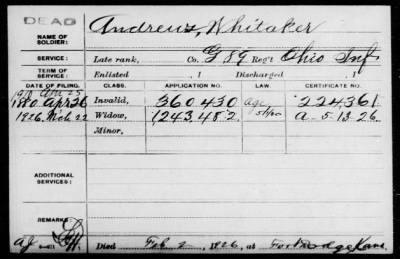 DEAD
Andrews, Whitaker
NAME OF
SOLDIER:
SERVICE:
Late rank, Co. G 89 Reg't Ohio Inf
TERM OF
SERVICE:
Enlisted , 1 Discharged , 1
DATE OF FILING. CLASS. APPLICATION NO. LAW. CERTIFICATE NO.
1880 Apr 26 Invalid, 360.430 224,361
1926, Mch 22 Widow, 1243.48.2 a-5-13-26
Minor,
ADDITIONAL
SERVICES:
REMARKS:
Died Feb 2 , 1926, at Fort Dodge Kans.